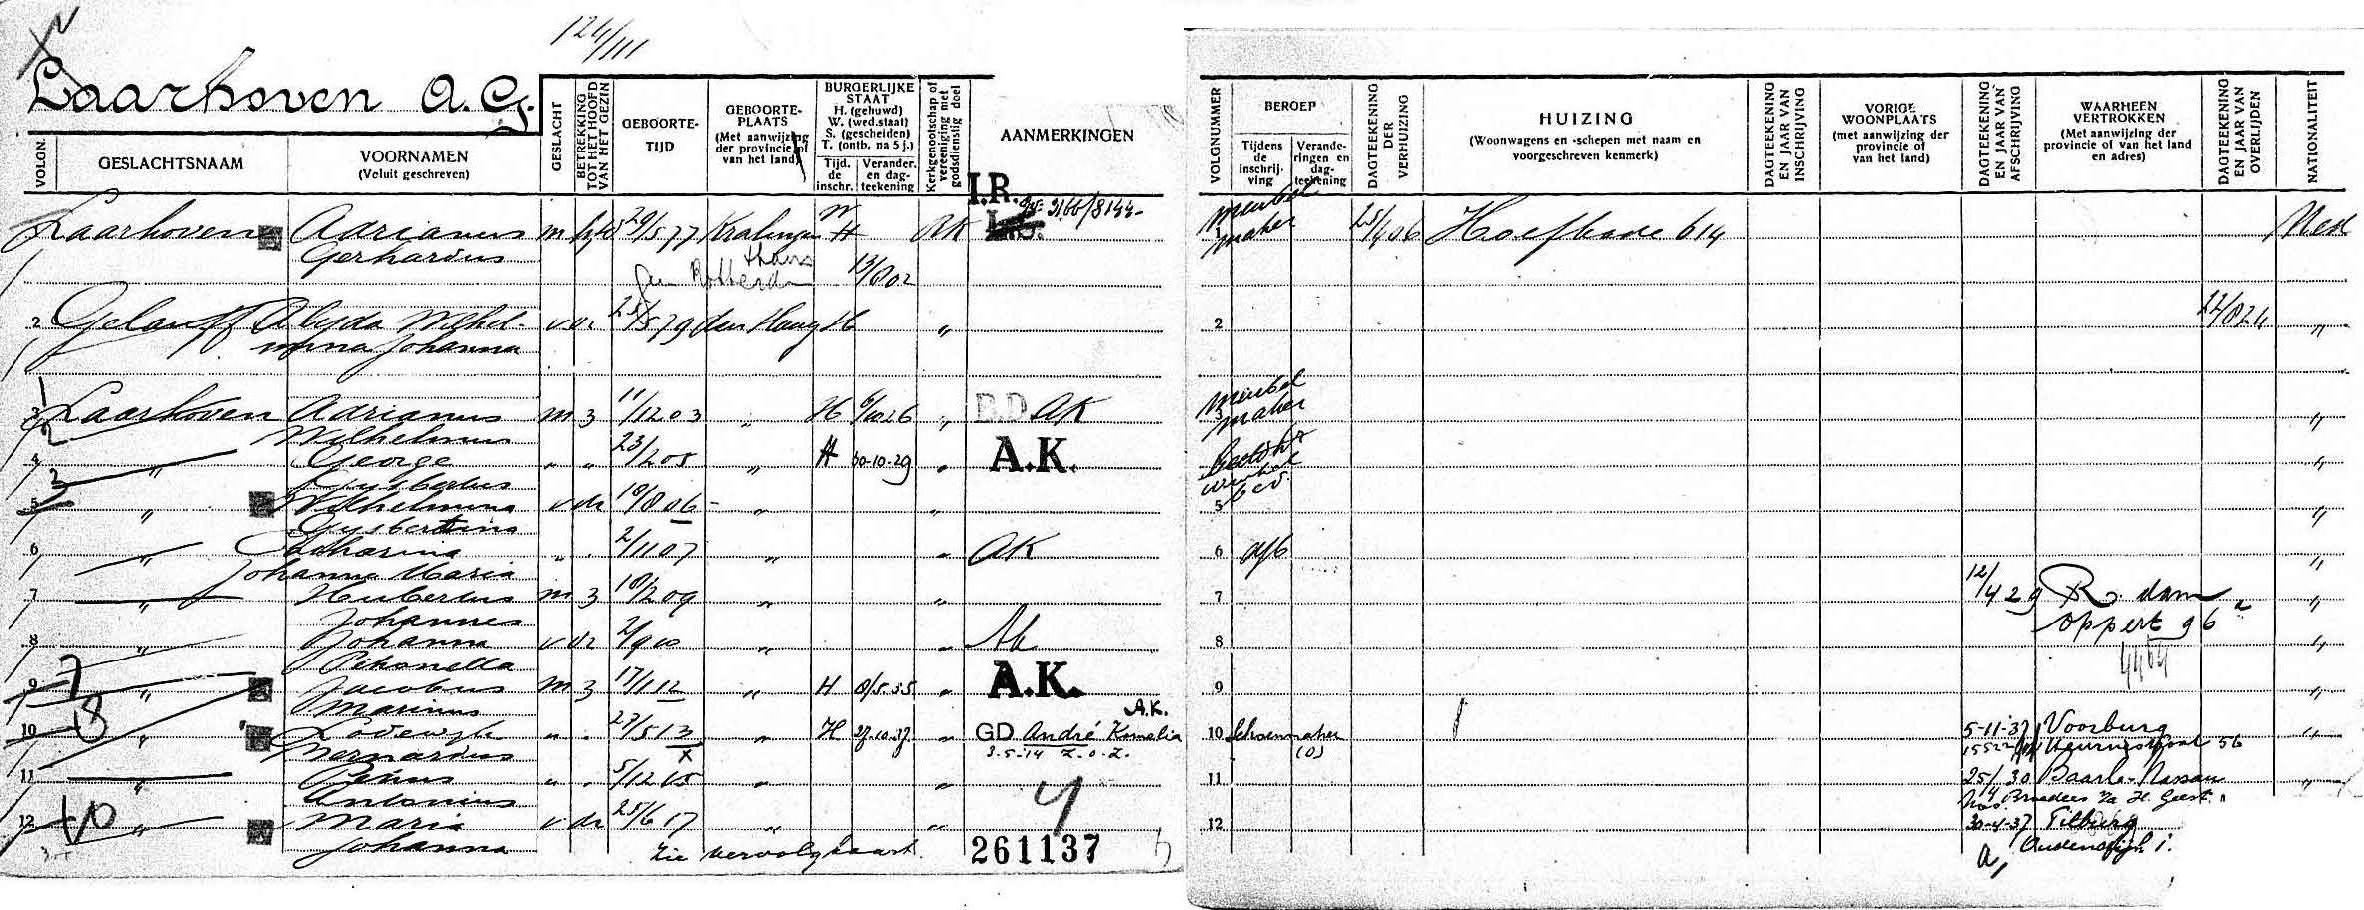 124/III
Laarhoven A. G.
VOLGN.
GESLACHTSNAAM
VOORNAMEN
(Voluit geschreven)
GESLACHT
BETREKKING TOT HET HOOFD VAN HET GEZIN
GEBOORTE-
TIJD
GEBOORTE-
PLAATS
(Met aanwijzing
der provincie of
van het land)
BURGERLIJKE
STAAT
H. (gehuwd)
W. (wed.staat)
S. (gescheiden)
T. (ontb. na 5 j.)
Tijd.
de
inschr.
Verander.
en dag-
teekening
Kerkgenootschap of
vereeniging met
godsdienstig doel
AANMERKINGEN
I.R.
Laarhoven Adrianus m 29/5 77 Kralingen H RK
Gerhardus
thans
Rotterdam 13/8 02
2 Gelauff Alijda Wilhel- v 25/5 79 den Haag H "
mina Johanna
3 Laarhoven Adrianus m 3 11/12 03 " H 6/10 26 " B.D AK
Wilhelmus
4 " George " " 23/2 05 " H 30-10-29 " A.K.
Gijsbertus
5 " Wilhelmina v dr 10/8 06 - " "
Gijsbertina
6 " Catharina " . 2/11 07 " " AK
Johanna Maria
7 " Hubertus m 3 10/2 09 " "
Johannes
8 " Johanna v dr " " Ak
Petronella
9 " Jacobus m 3 17/1 12 " H 8/5.35. " A.K.
Marinus
A.K.
10 " Lodewijk " . 27/5 13 " H 27.10.37. " GD André Kornelia
Bernardus x 3.5.14 Z.O.Z.
11 " Petrus " . 5/12 15 " "
Antonius
12 " Maria v dr 25/6 17 " "
Johanna Zie vervolgkaart. 261137
VOLGNUMMER
BEROEP
Tijdens
de
inschrij-
ving
Verande-
ringen en
dag-
teekening
DAGTEEKENING
DER
VERHUIZING
HUIZING
(Woonwagens en -schepen met naam en
voorgeschreven kenmerk)
DAGTEEKENING
EN JAAR VAN
INSCHRIJVING
VORIGE
WOONPLAATS
(met aanwijzing der
provincie of
van het land)
DAGTEEKENING
EN JAAR VAN
AFSCHRIJVING
WAARHEEN
VERTROKKEN
(Met aanwijzing der
provincie of van het land
en adres)
DAGTEEKENING
EN JAAR VAN
OVERLIJDEN
NATIONALITEIT
meubel
1 maker 25/4 06 Hoefkade 614 Ned
2 22/8 24 "
meubel
3 maker "
"
5 "
6 "
12/4 29 R. dam
7 Oppert 96 "
8 "
9 "
10 Schoenmaker 5-11-37 Voorburg "
(O) 56
11 25/ 30 Baarle-Nassau "
Broeders v/d H. Geest
12 30-4-37 Tilburg
Oudendijk 1.